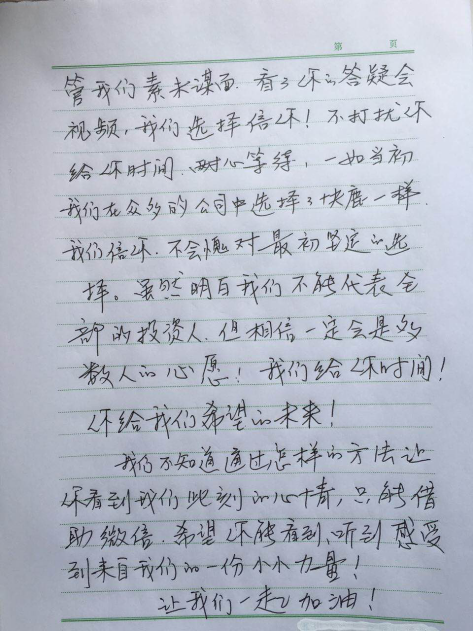 第 页
管我们素未谋面.看了你的答疑会
视频,我们选择信你!不打扰你
给你时间.耐心等待,一如当初
我们在众多的公司中选择了快鹿一样.
我们信你.不会愧对最初坚定的选
择。虽然明白我们不能代表全
部的投资人.但相信一定会是多
数人的心愿!我们给你时间!
你给我们希望的未来!
我们不知道通过怎样的方法让
你看到我们此刻的心情,只能借
助微信.希望你能看到、听到 感受
到来自我们的一份小小力量!
让我们一起加油!